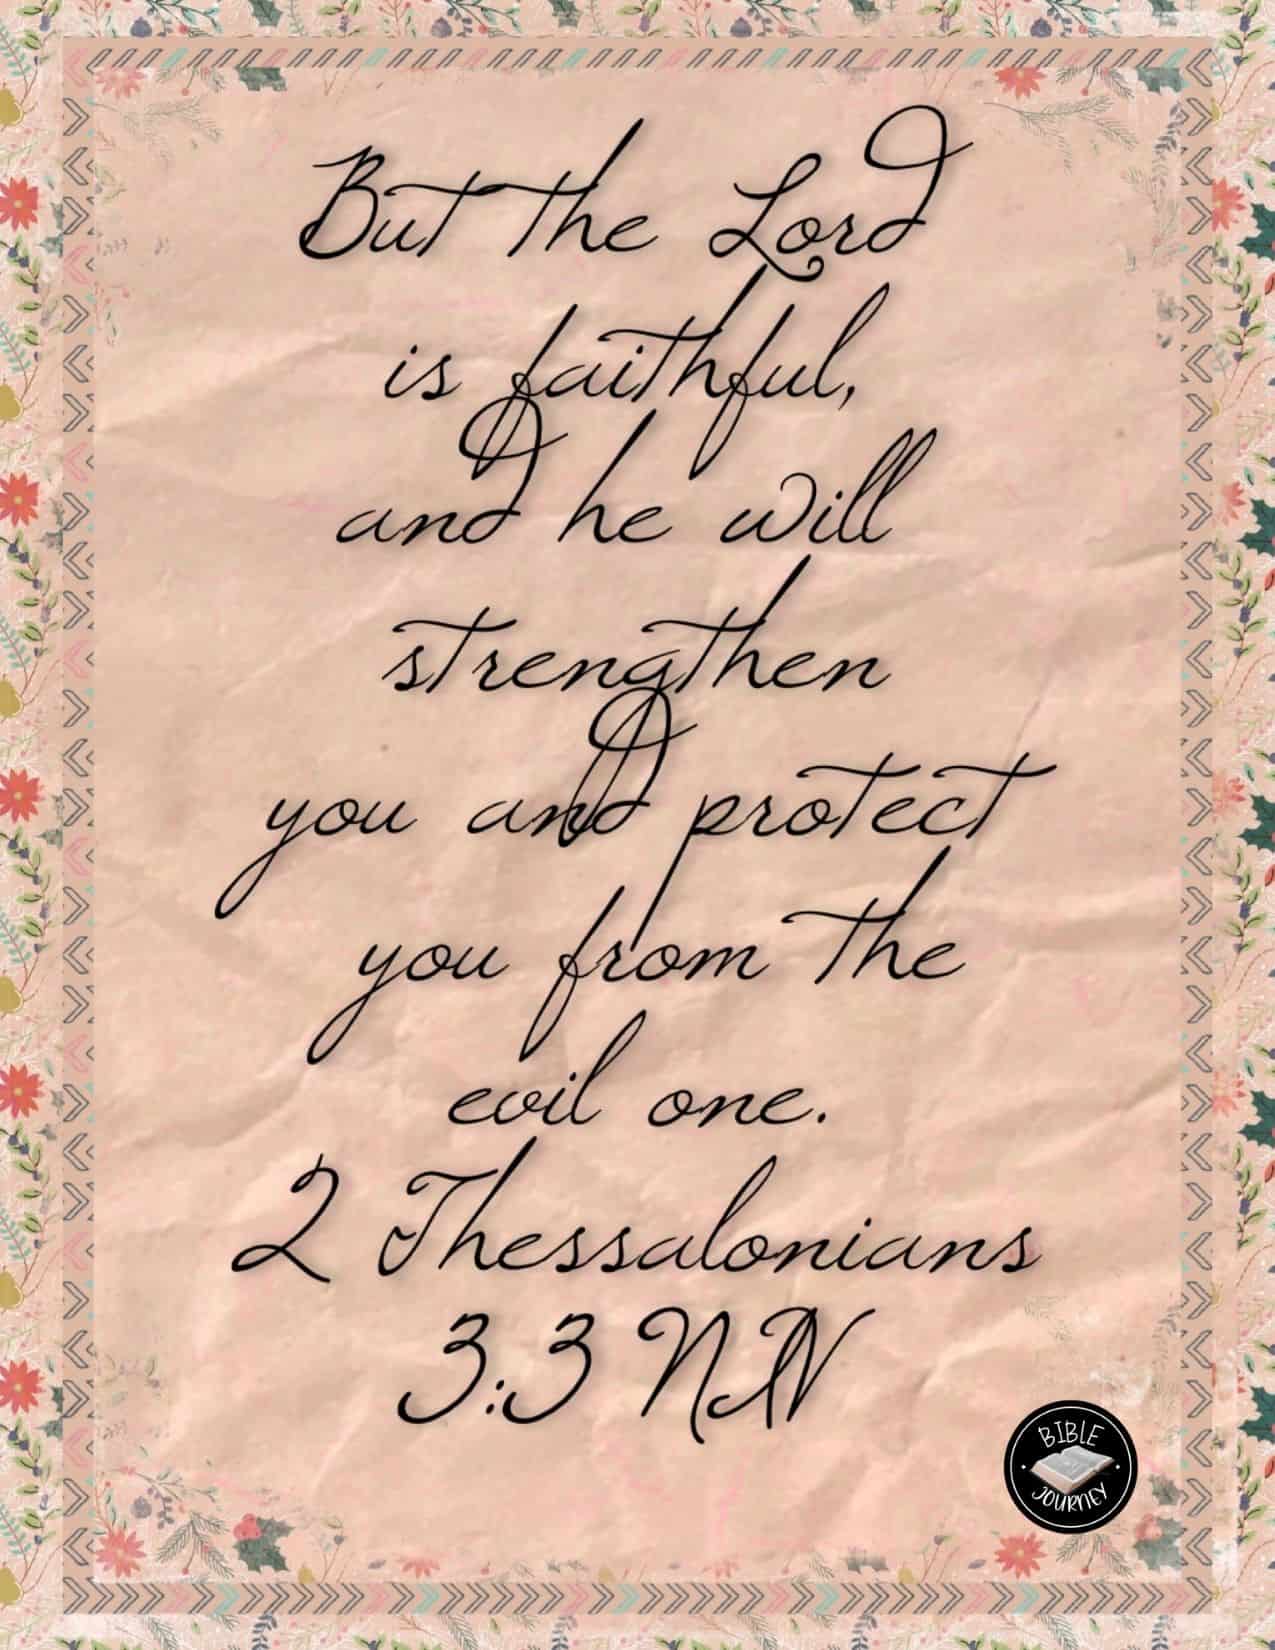 But the Lord
is faithful,
and he will
strengthen
you and protect
you from the
evil one.
2 Thessalonians
3:3 NIV
BIBLE
JOURNEY